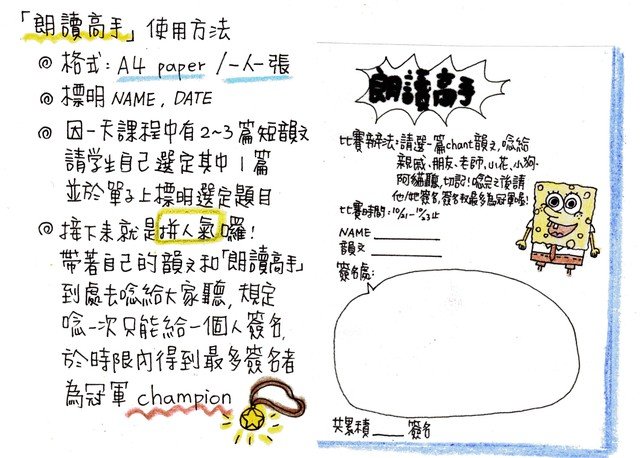 「朗讀高手」使用方法
◎ 格式：A4 paper / 一人一張
◎ 標明 NAME, DATE
◎ 因一天課程中有2~3篇短韻文
請學生自己選定其中1篇
並於單子上標明選定題目
◎ 接下來就是拼人氣囉！
帶著自己的韻文和「朗讀高手」
到處去唸給大家聽，規定
唸一次只能給一個人簽名，
於時限內得到最多簽名者
為冠軍 champion
朗讀高手
比賽辦法：請選一篇chant韻文，唸給
親戚、朋友、老師、小花、小狗、
阿貓聽，切記！唸完之後請
他/她簽名，簽名數最多為冠軍喔！
比賽時間：10/1~10/3止
NAME
韻文
簽名處：
共累積____簽名